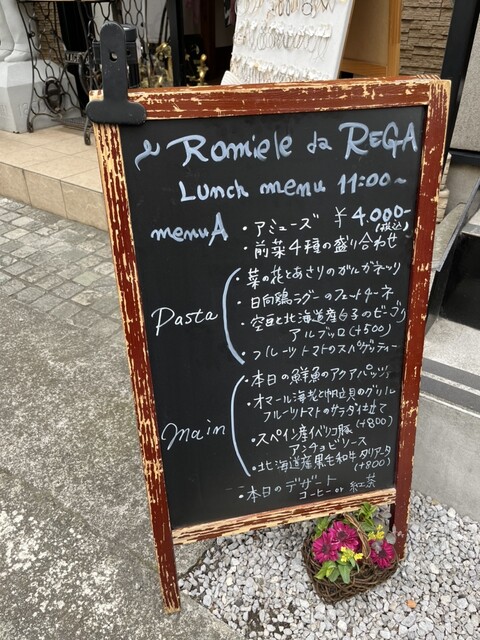 Romiele da REGA
Lunch menu 11:00~
menuA ・アミューズ ¥4,000-
(税込)
・前菜4種の盛り合わせ
Pasta
・菜の花とあさりのガルガネッリ
・日向鶏ラグーのフェットチーネ
・空豆と北海道産白子のビーゴリ
アルブッロ(+500)
・フルーツトマトのスパゲッティー
Main
・本日の鮮魚のアクアパッツァ
・オマール海老と帆立貝のグリル
フルーツトマトのサラダ仕立て
(+800)
・スペイン産イベリコ豚
アンチョビソース
・北海道産黒毛和牛タリアータ
(+800)
・本日のデザート
コーヒーor紅茶